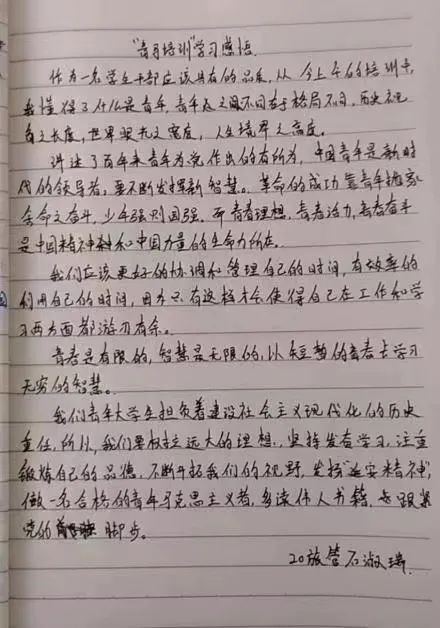 "青马培训"学习感悟
作为一名学生干部应该具有的品系,从今上午的培训中,
我懂得了什么是青年,青年人之间不同在于格局不同,历史视
角之长度,世界眼光之宽度,人生境界之高度。
讲述了百年来青年为党作出的有所为,中国青年是新时
代的领导者,要不断发挥新智慧。革命的成功靠青年抛家
舍命之奋斗,少年强则国强。而青春理想,青春活力,青春奋斗
是中国精神和中国力量的生命力所在。
我们应该更好的协调和管理自己的时间,有效率的
利用自己的时间,因为只有这样才会使得自己在工作和学
习两方面都游刃有余。
青春是有限的,智慧是无限的,以短暂的青春去学习
无穷的智慧。
我们青年大学生担负着建设社会主义现代化的历史
重任,所以,我们要树立远大的理想,坚持发奋学习,注重
锻炼自己的品德,不断开拓我们的视野,发扬"延安精神",
做一名合格的青年马克思主义者,多读伟人书籍,去跟紧
党的脚步。
20旅管石淑瑞